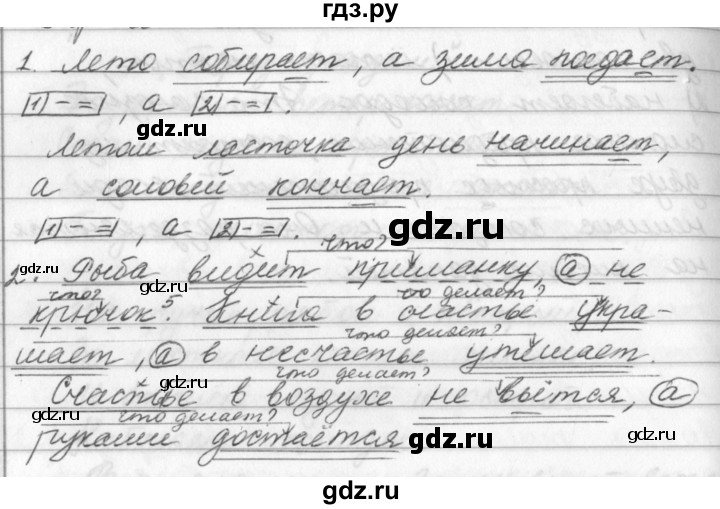 гдз.ру
1. Лето собирает, а зима поедает.
[1) – =], а [2) – =].
gdz.ru gdz.ru
Летом ласточка день начинает,
а соловей кончает.
gdz.ru
[1) – =], а [2) – =].
gdz.ru
что?
2. Рыба видит приманку, а не
gdz.ru
что? что делает?
крючок⁵. Книга в счастье укра-
gdz.ru
что делает?
шает, а в несчастье утешает.
что делает?
Счастье в воздухе не вьётся, а
gdz.ru gdz.ru
что делает?
руками достаётся
gdz.ru gdz.ru
gdz.ru